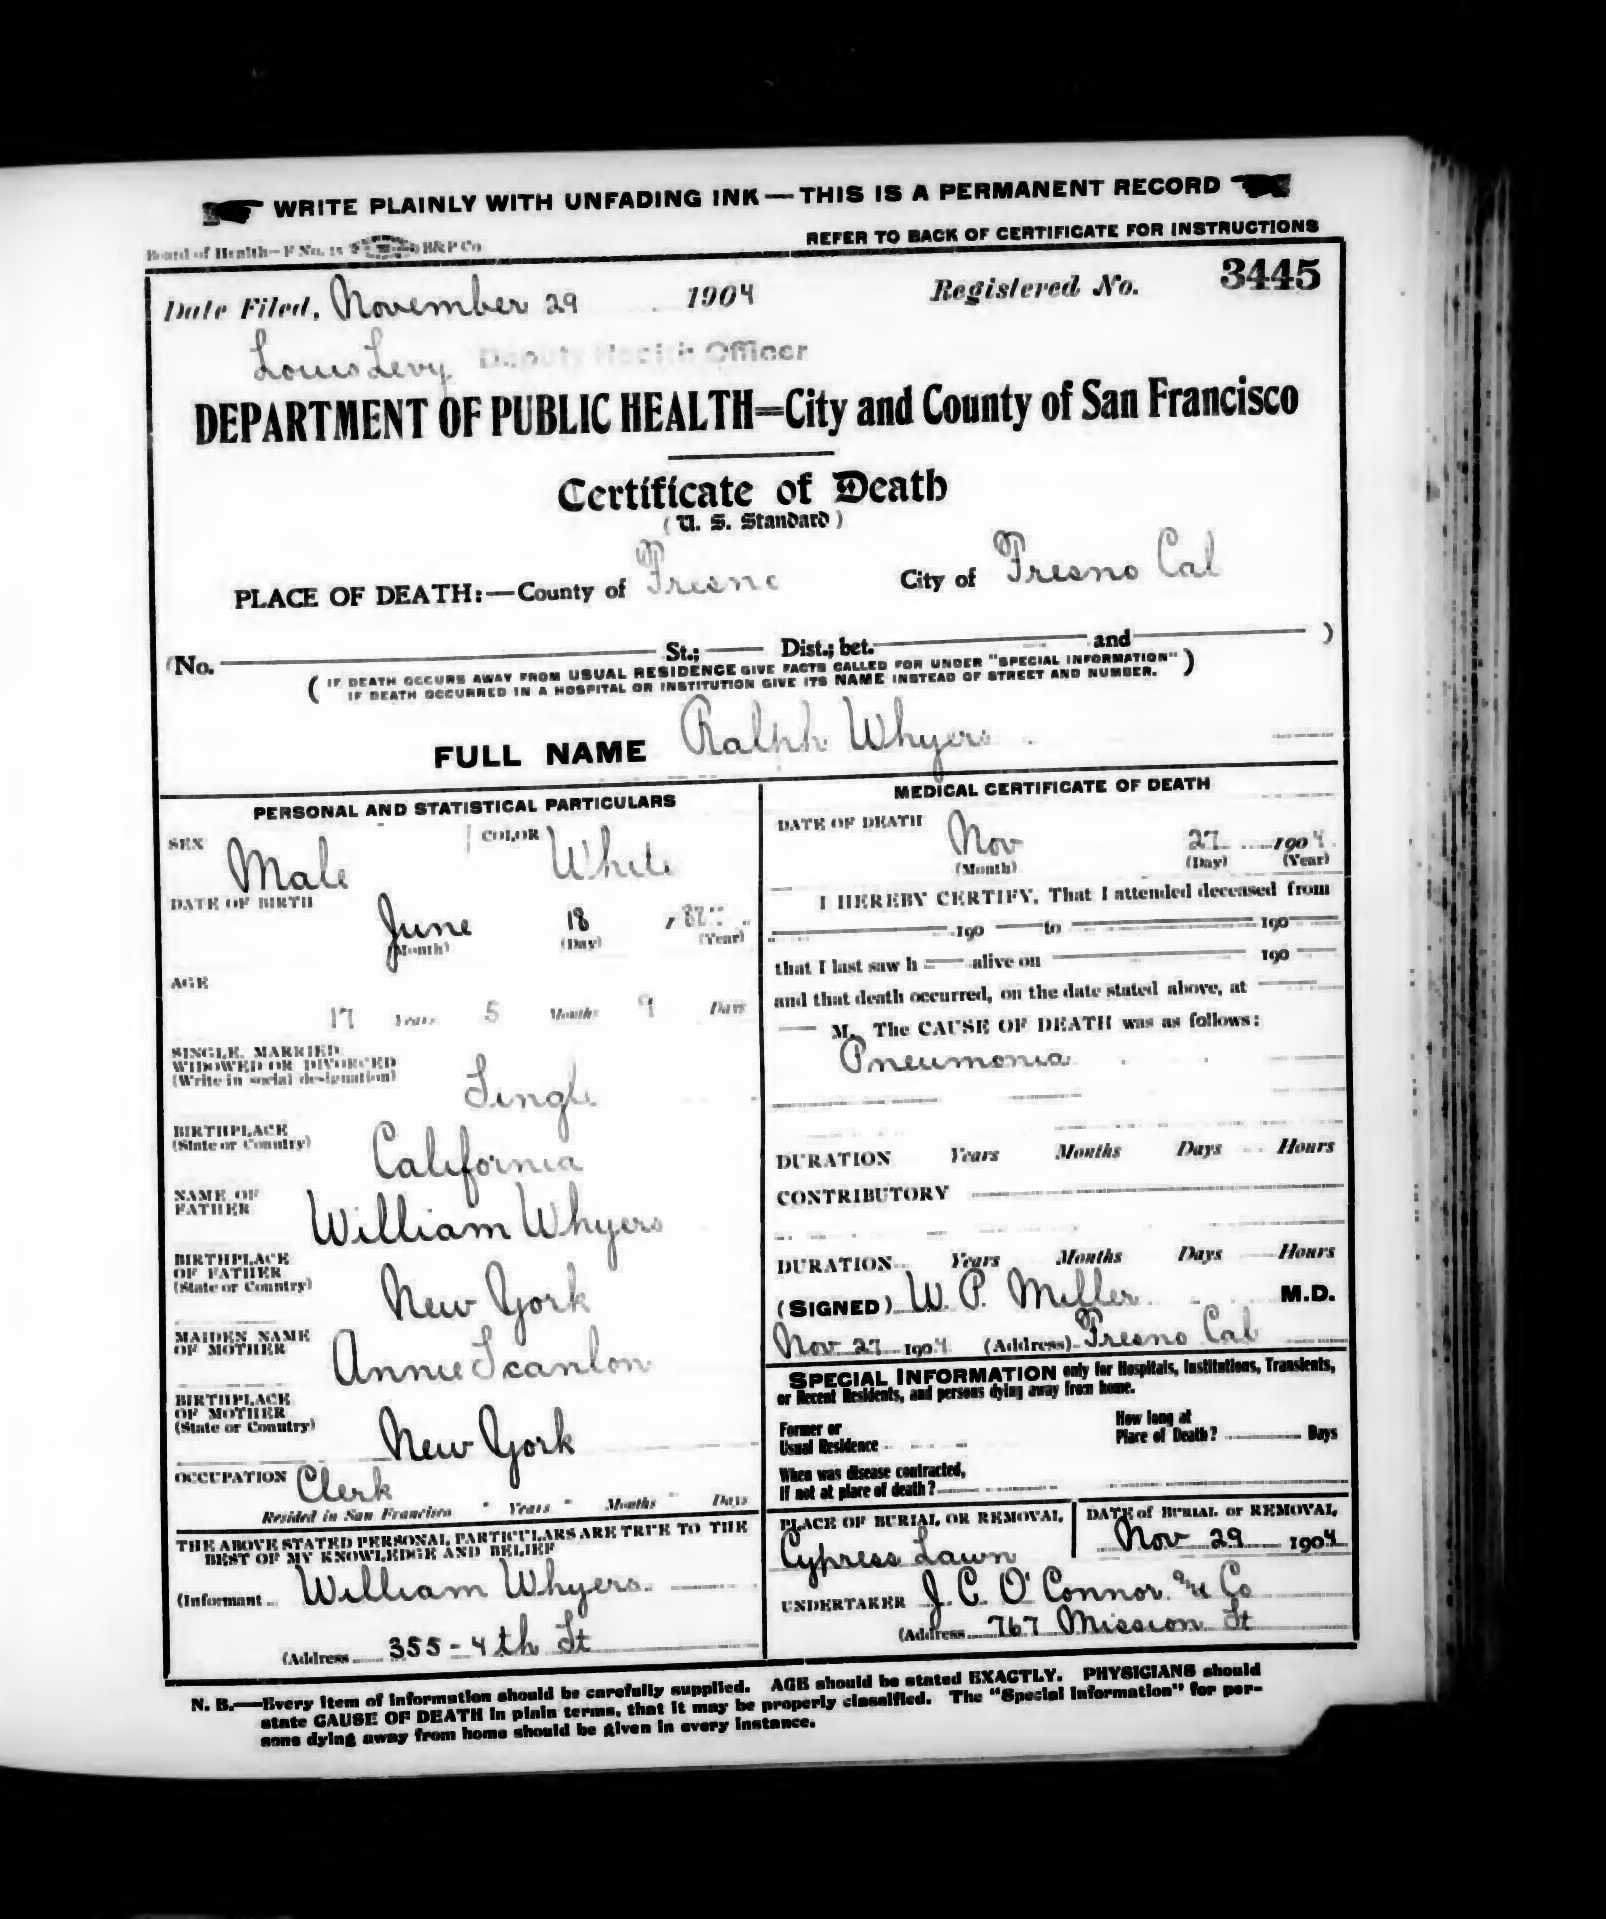 WRITE PLAINLY WITH UNFADING INK — THIS IS A PERMANENT RECORD
Board of Health—F No. 15 B&P Co
REFER TO BACK OF CERTIFICATE FOR INSTRUCTIONS
Date Filed, November 29 1904 Registered No. 3445
Louis Levy Deputy Health Officer
DEPARTMENT OF PUBLIC HEALTH=City and County of San Francisco
Certificate of Death
(U. S. Standard)
PLACE OF DEATH:—County of Fresno City of Fresno Cal
(No. St.; Dist.; bet. and )
( IF DEATH OCCURS AWAY FROM USUAL RESIDENCE GIVE FACTS CALLED FOR UNDER "SPECIAL INFORMATION" )
IF DEATH OCCURRED IN A HOSPITAL OR INSTITUTION GIVE ITS NAME INSTEAD OF STREET AND NUMBER.
FULL NAME Ralph Whyers
PERSONAL AND STATISTICAL PARTICULARS
SEX Male COLOR White
DATE OF BIRTH
June 18
(Month) (Day) (Year)
AGE
17 Years 5 Months 9 Days
SINGLE, MARRIED,
WIDOWED OR DIVORCED
(Write in social designation) Single
BIRTHPLACE
(State or Country) California
NAME OF
FATHER William Whyers
BIRTHPLACE
OF FATHER
(State or Country) New York
MAIDEN NAME
OF MOTHER Annie Scanlon
BIRTHPLACE
OF MOTHER
(State or Country) New York
OCCUPATION Clerk
Resided in San Francisco " Years " Months " Days
THE ABOVE STATED PERSONAL PARTICULARS ARE TRUE TO THE
BEST OF MY KNOWLEDGE AND BELIEF
(Informant William Whyers
(Address 355-4th St
MEDICAL CERTIFICATE OF DEATH
DATE OF DEATH Nov 27 1904
(Month) (Day) (Year)
I HEREBY CERTIFY, That I attended deceased from
190 to 190
that I last saw h alive on 190
and that death occurred, on the date stated above, at
M. The CAUSE OF DEATH was as follows:
Pneumonia
DURATION Years Months Days Hours
CONTRIBUTORY
DURATION Years Months Days Hours
(SIGNED) W. P. Miller M.D.
Nov 27 1904 (Address) Fresno Cal
SPECIAL INFORMATION only for Hospitals, Institutions, Transients,
or Recent Residents, and persons dying away from home.
Former or
Usual Residence
How long at
Place of Death? Days
When was disease contracted,
If not at place of death?
PLACE OF BURIAL OR REMOVAL, DATE of BURIAL or REMOVAL,
Cypress Lawn Nov 29 1904
UNDERTAKER J. C. O'Connor and Co
(Address 767 Mission St
N. B.—Every item of information should be carefully supplied. AGE should be stated EXACTLY. PHYSICIANS should
state CAUSE OF DEATH in plain terms, that it may be properly classified. The "Special Information" for per-
sons dying away from home should be given in every instance.